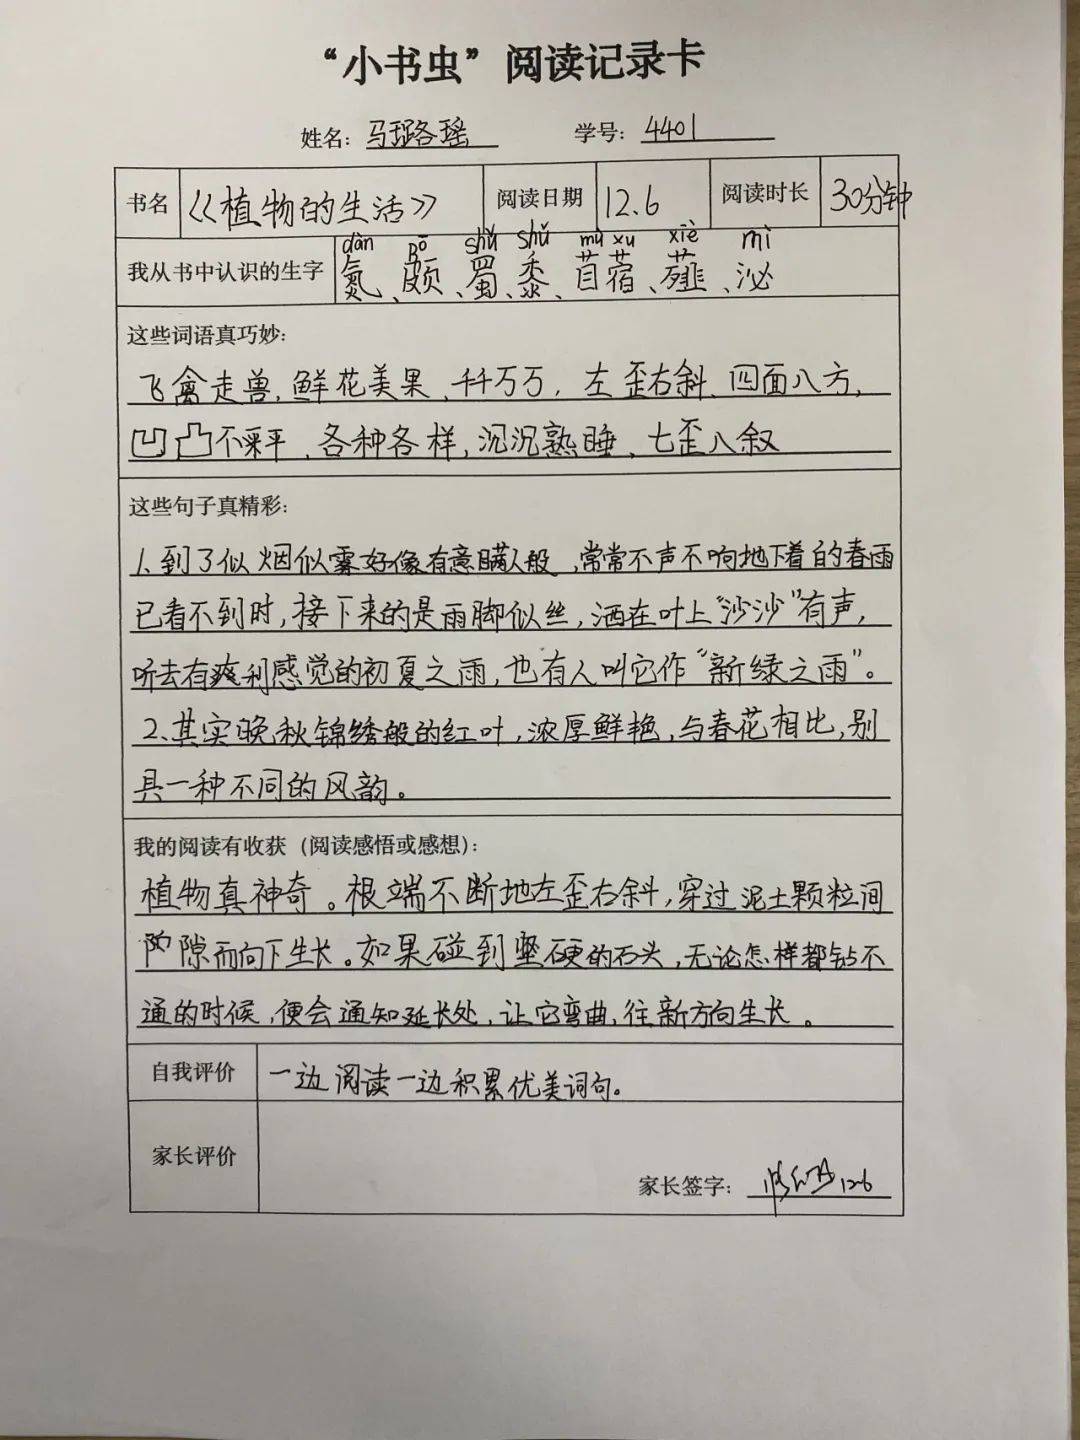 “小书虫”阅读记录卡
姓名：马璐瑶 学号：4401
书名 《植物的生活》 阅读日期 12.6 阅读时长 30分钟
dàn Bō shǔ shǔ mù xu xiè mì
我从书中认识的生字 氮、颇、蜀、黍、苜蓿、薤、泌
这些词语真巧妙：
飞禽走兽、鲜花美果、千千万万，左歪右斜、四面八方，
凹凸不平、各种各样，沉沉熟睡、七歪八叙
这些句子真精彩：
1、到了似烟似雾好像有意瞒人般，常常不声不响地下着的春雨
已看不到时，接下来的是雨脚似丝，洒在叶上“沙沙”有声，
听去有爽利感觉的初夏之雨，也有人叫它作“新绿之雨”。
2、其实晚秋锦绣般的红叶，浓厚鲜艳，与春花相比，别
具一种不同的风韵。
我的阅读有收获（阅读感悟或感想）：
植物真神奇。根端不断地左歪右斜，穿过泥土颗粒间
隙而向下生长。如果碰到坚硬的石头，无论怎样都钻不
通的时候，便会通知延长处，让它弯曲，往新方向生长。
自我评价 一边阅读一边积累优美词句。
家长评价
家长签字： 12.6